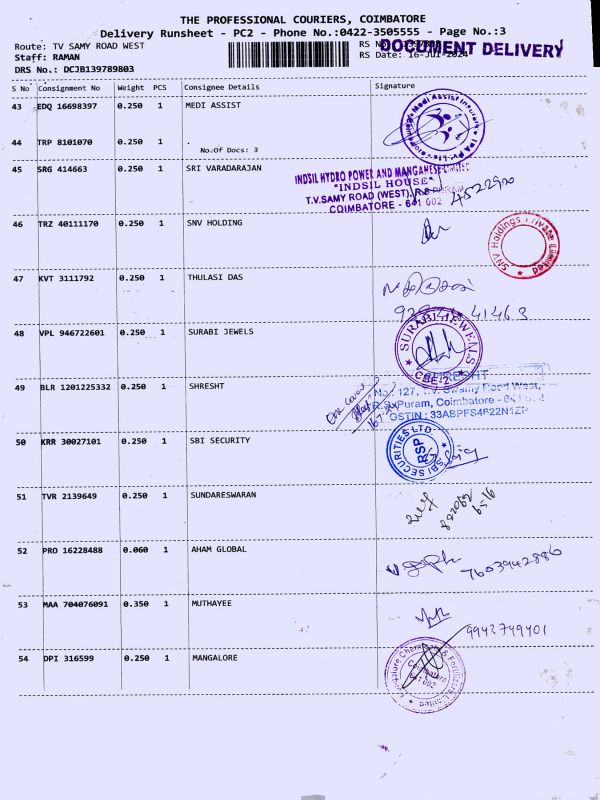 THE PROFESSIONAL COURIERS, COIMBATORE
Delivery Runsheet - PC2 - Phone No.:0422-3505555 - Page No.:3
Route: TV SAMY ROAD WEST RS No
DOCUMENT DELIVERY
Staff: RAMAN RS Date: 16-Jul-2024
DRS No.: DCJB139789803
S No Consignment No Weight PCS Consignee Details Signature
43 EDQ 16698397 0.250 1 MEDI ASSIST
Medi Assist
44 TRP 8101070 0.250 1 .
No.Of Docs: 3
45 SRG 414663 0.250 1 SRI VARADARAJAN
INDSIL HYDRO POWER AND MANGANESE LIMITED
"INDSIL HOUSE"
T.V.SAMY ROAD (WEST), R.S PURAM
COIMBATORE - 641 002
46 TRZ 40111170 0.250 1 SNV HOLDING
SNV Holdings Private Limited
47 KVT 3111792 0.250 1 THULASI DAS
41463
48 VPL 946722601 0.250 1 SURABI JEWELS
SURABI JEWELS
CBE-2
49 BLR 1201225332 0.250 1 SHRESHT
No: 127, T.V. Swamy Road West,
R.S. Puram, Coimbatore - 641 002
GSTIN : 33ABPFS4622N1ZP
one cover
50 KRR 30027101 0.250 1 SBI SECURITY
SBI SECURITIES LTD
RSP
51 TVR 2139649 0.250 1 SUNDARESWARAN
52 PRO 16228488 0.060 1 AHAM GLOBAL
7603942886
53 MAA 704076091 0.350 1 MUTHAYEE
9942749401
54 DPI 316599 0.250 1 MANGALORE
Mangalore Chemicals & Fertilizers Limited
Coimbatore
641 002